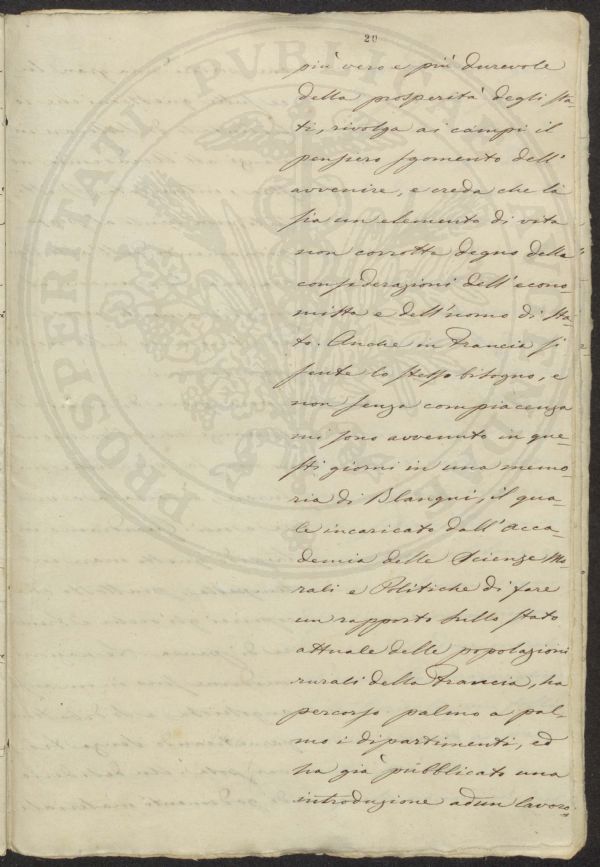 20
più vero e più durevole
della prosperità degli sta-
ti, rivolga ai campi il
pensiero sgomento dell'
avvenire, e creda che là
sia un elemento di vita
non corrotta degno della
considerazioni dell'econo-
mista e dell'uomo di sta-
to. Anche in Francia si
sente lo stesso bisogno, e
non senza compiacenza
mi sono avvenuto in que-
sti giorni in una memo-
ria di Blanqui, il qua-
le incaricato dall'Acca-
demia delle Scienze Mo-
rali e Politiche di fare
un rapporto sullo stato
attuale delle popolazioni
rurali della Francia, ha
percorso palmo a pal-
mo i dipartimenti, ed
ha già pubblicato una
introduzione ad un lavoro
PROSPERITATI PVBLICAE AVGENDAE